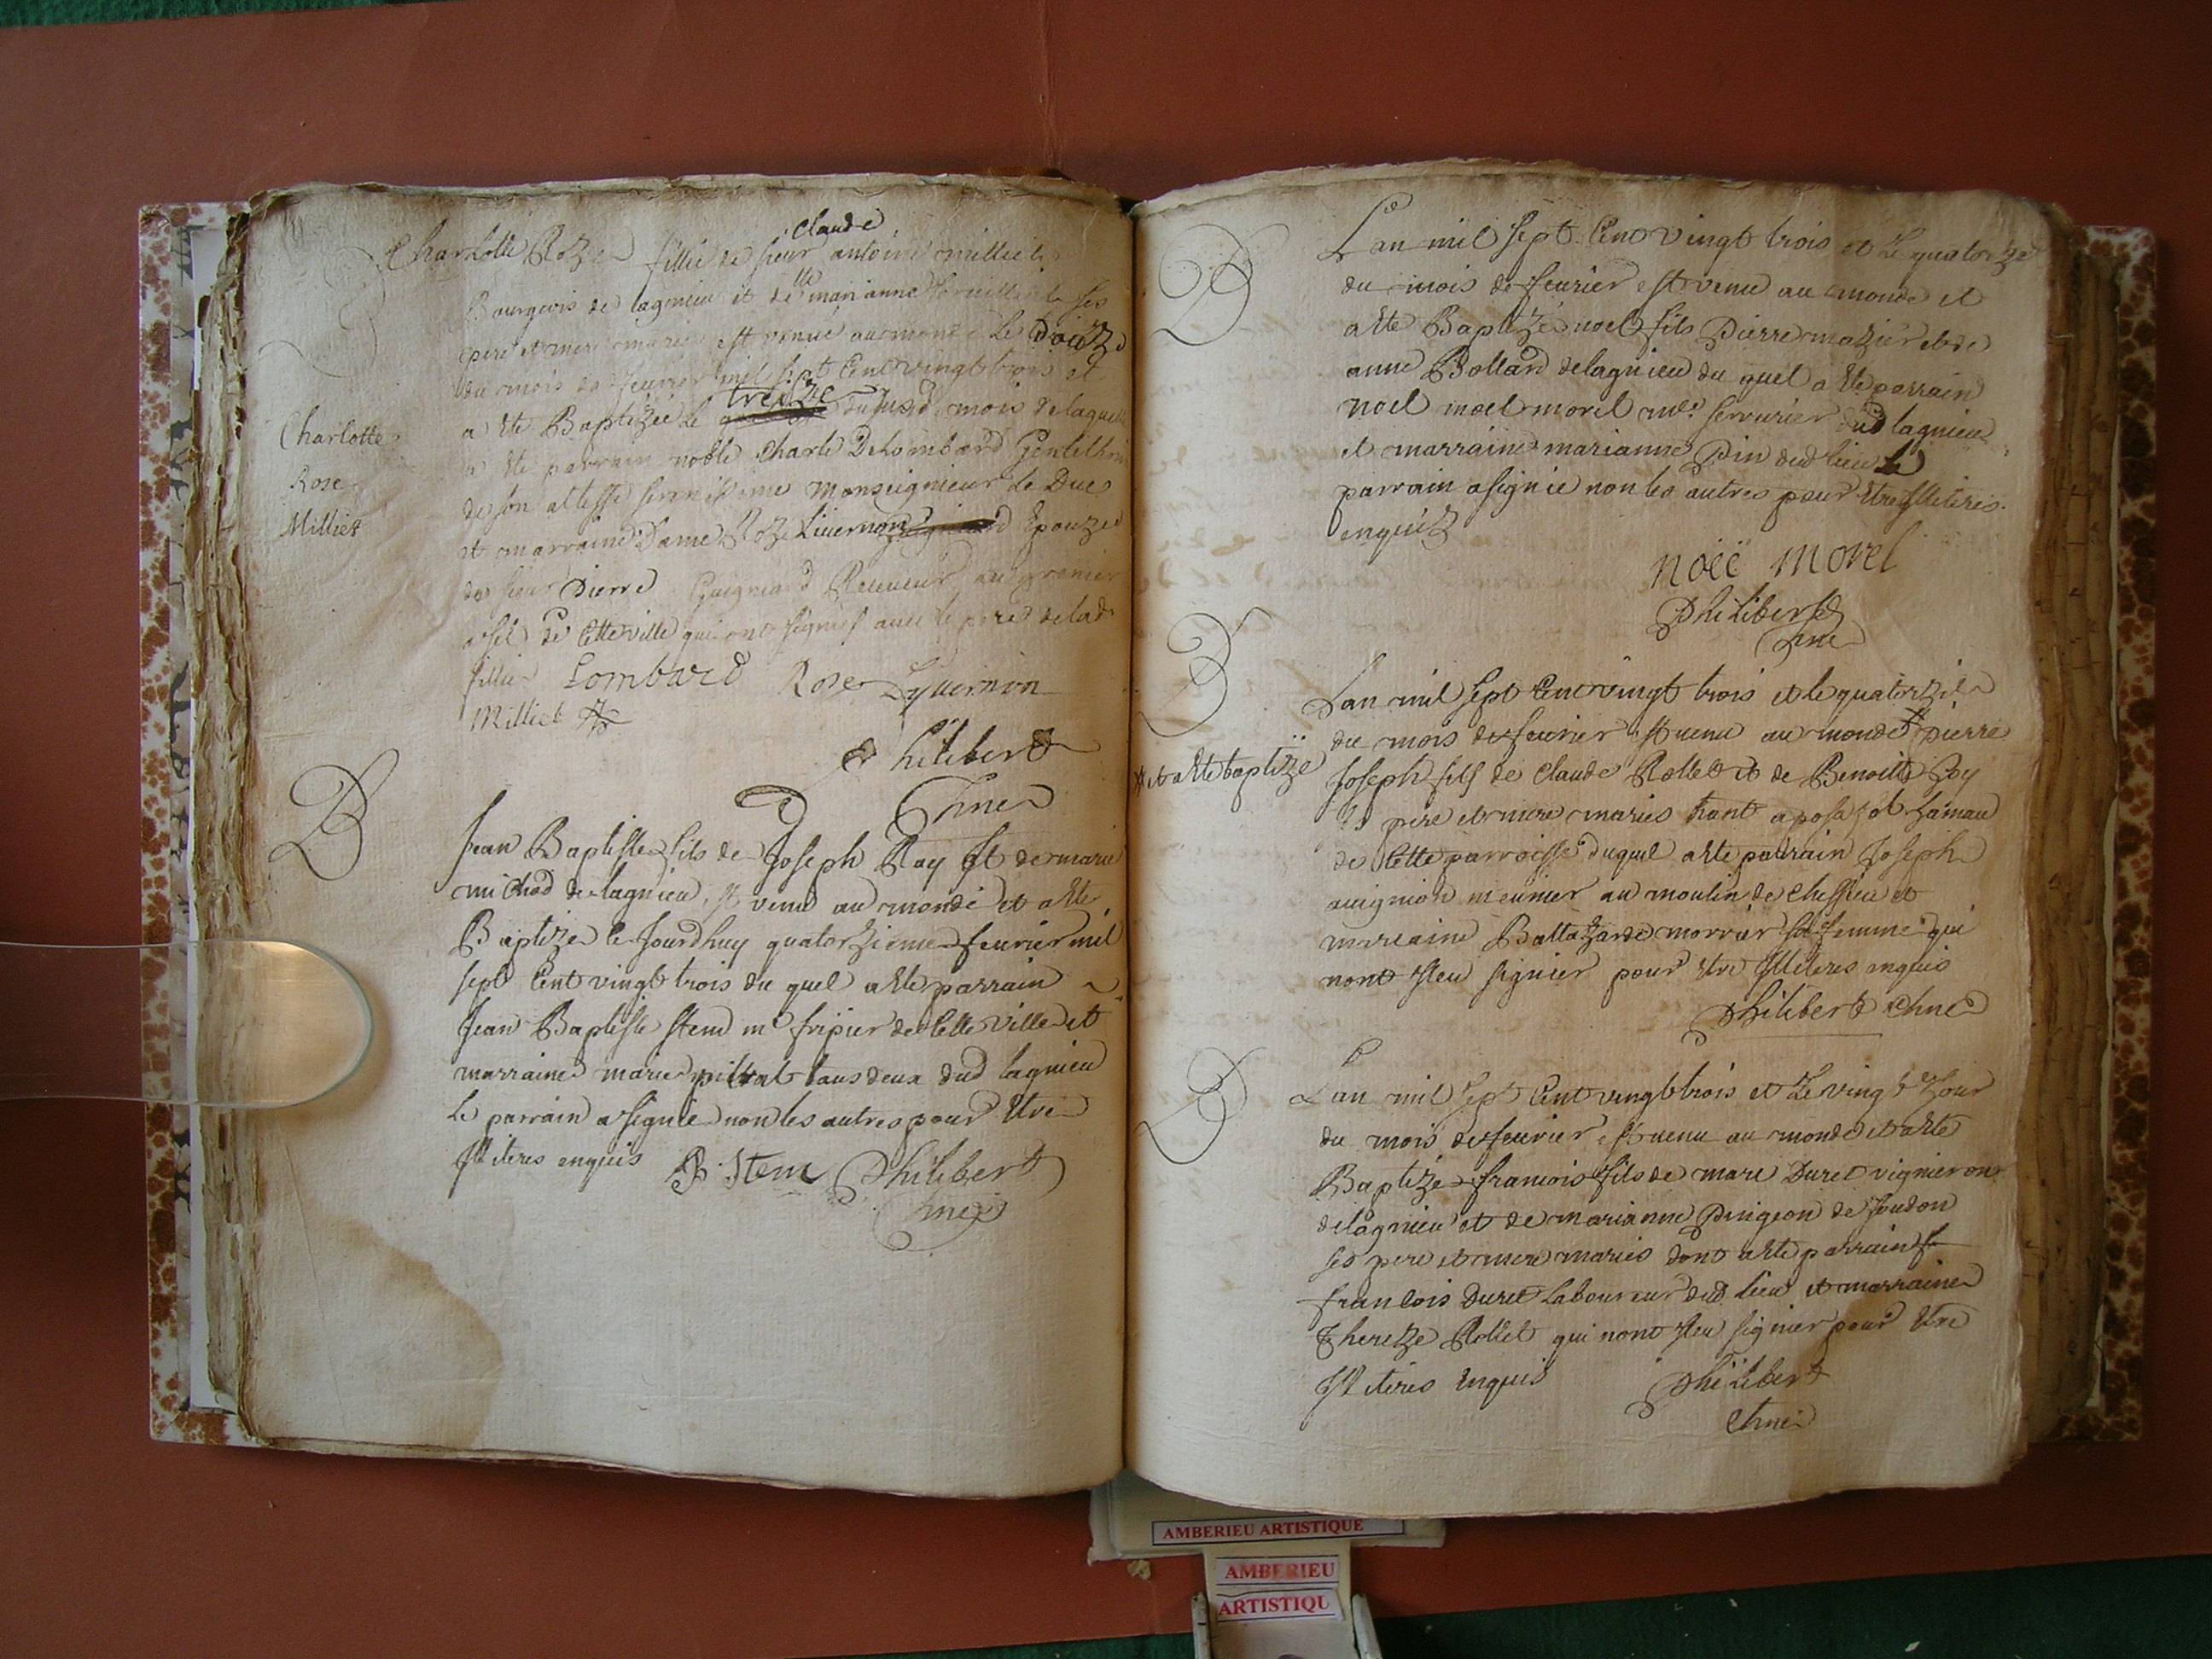 Claude
Charlotte Roze fillie de sieur antoine milliet
Bourgeois de lagnieu et de lle marianne ses
pere et mere mariés est venue au monde le douze
du mois de feurier mil sept Cent vingt trois et
treize
a ete Baptizée le dusd. mois delaquelle
a ete parrain noble Charle De Lombard Gentilhom
de son altesse serenissime Monseignieur le Duc
et marraine Dame Roze Liuernon Epouze
de sieur Pierre Guignard Receueur au grenier
a sel de Cette ville qui ont signés auec le pere de lad
fillie Lombard Rose Lyuernon
Milliet
Philibert
Charlotte
Rose
Milliet
B
Jean Baptiste fils de Joseph Ray et de marie
michod de lagnieu est venu au monde et a ete
Baptize le Jourdhuy quatorzieme feurier mil
sept Cent vingt trois du quel a ete parrain
Jean Baptiste Stem me fripier de Cette ville et
marraine marie pitrat tous deux dud lagnieu
le parrain a signé non les autres pour Etre
Illiteres enquis B. Stem Philibert
B
Lan mil sept Cent vingt trois et Le quatorze
du mois de feurier est venu au monde et
a ete Baptizé noel fils Pierre mazier et de
anne Bollard de lagnieu du quel a ete parrain
noel noel morel me serrurier dud lagnieu
et marraine marianne Pin dud lieu le
parrain a signié non les autres pour etre Illiteres
enquis
noël morel
Philibert
B
Lan mil sept Cent vingt trois et le quatorzie
du mois de feurier est uenu au monde # pierre
# et a ete baptize
Joseph fils de Claude Rollet et de Benoitte Goy
pere et mere mariés hamau
de Cette parroisse duquel a ete parrain Joseph
auignion meunier au moulin de Chessieu et
marraine Baltazarde morrier sa femme qui
nont sceu signier pour etre Illiteres enquis
Philibert
B
Lan mil sept Cent vingt trois et Le vingt Jour
du mois de feurier est uenu au monde et a ete
Baptize francois fils de marc Duret vignieron
de lagnieu et de marianne Pingeon de soudon
ses pere et mere mariés dont a ete parrain
francois Duret Laboureur dud. lieu et marraine
Thereze Rollet qui nont sceu signier pour Etre
Illiteres Enquis Philibert
AMBERIEU ARTISTIQUE
AMBERIEU
ARTISTIQU